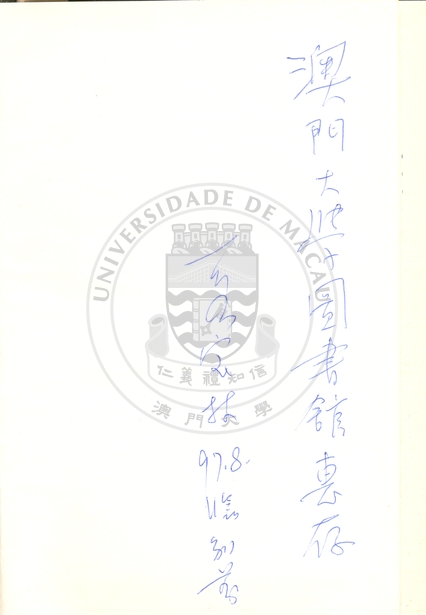 澳門大學圖書館惠存
97.8.
臨別前
UNIVERSIDADE DE MACAU
仁義禮知信
澳門大學